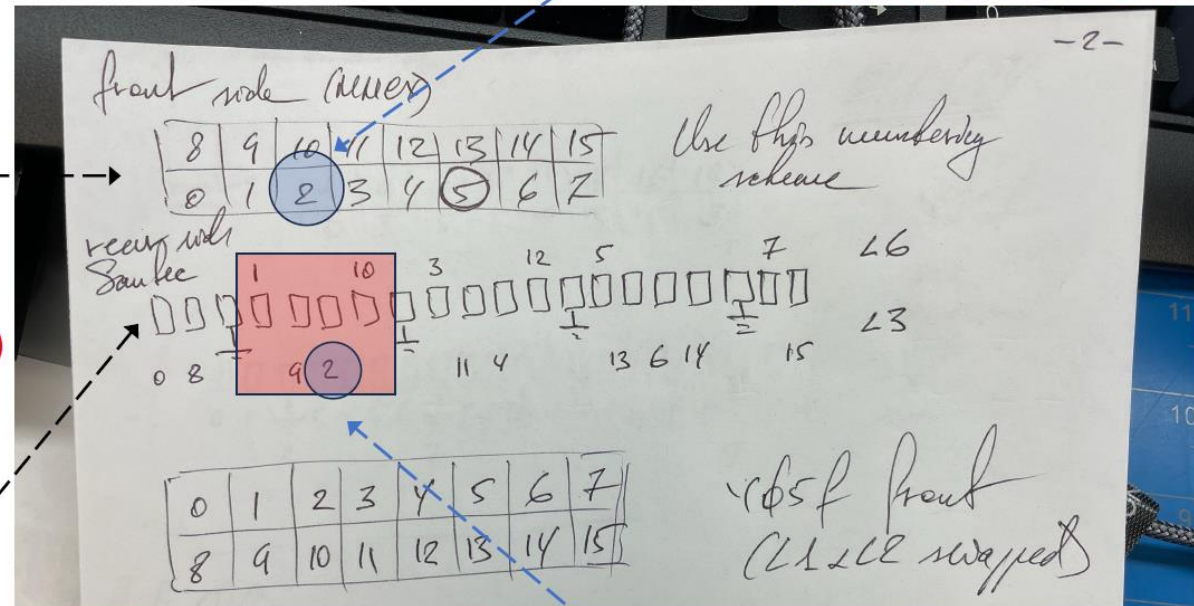 -2-
front side
8 9 10 11 12 13 14 15
0 1 2 3 4 5 6 7
Use this numbering
scheme
rear side
Samtec
1 10 3 12 5 7 L6
L3
0 8 9 2 11 4 13 6 14 15
0 1 2 3 4 5 6 7
8 9 10 11 12 13 14 15
front
(L1 & L2 swapped)
11
10
9